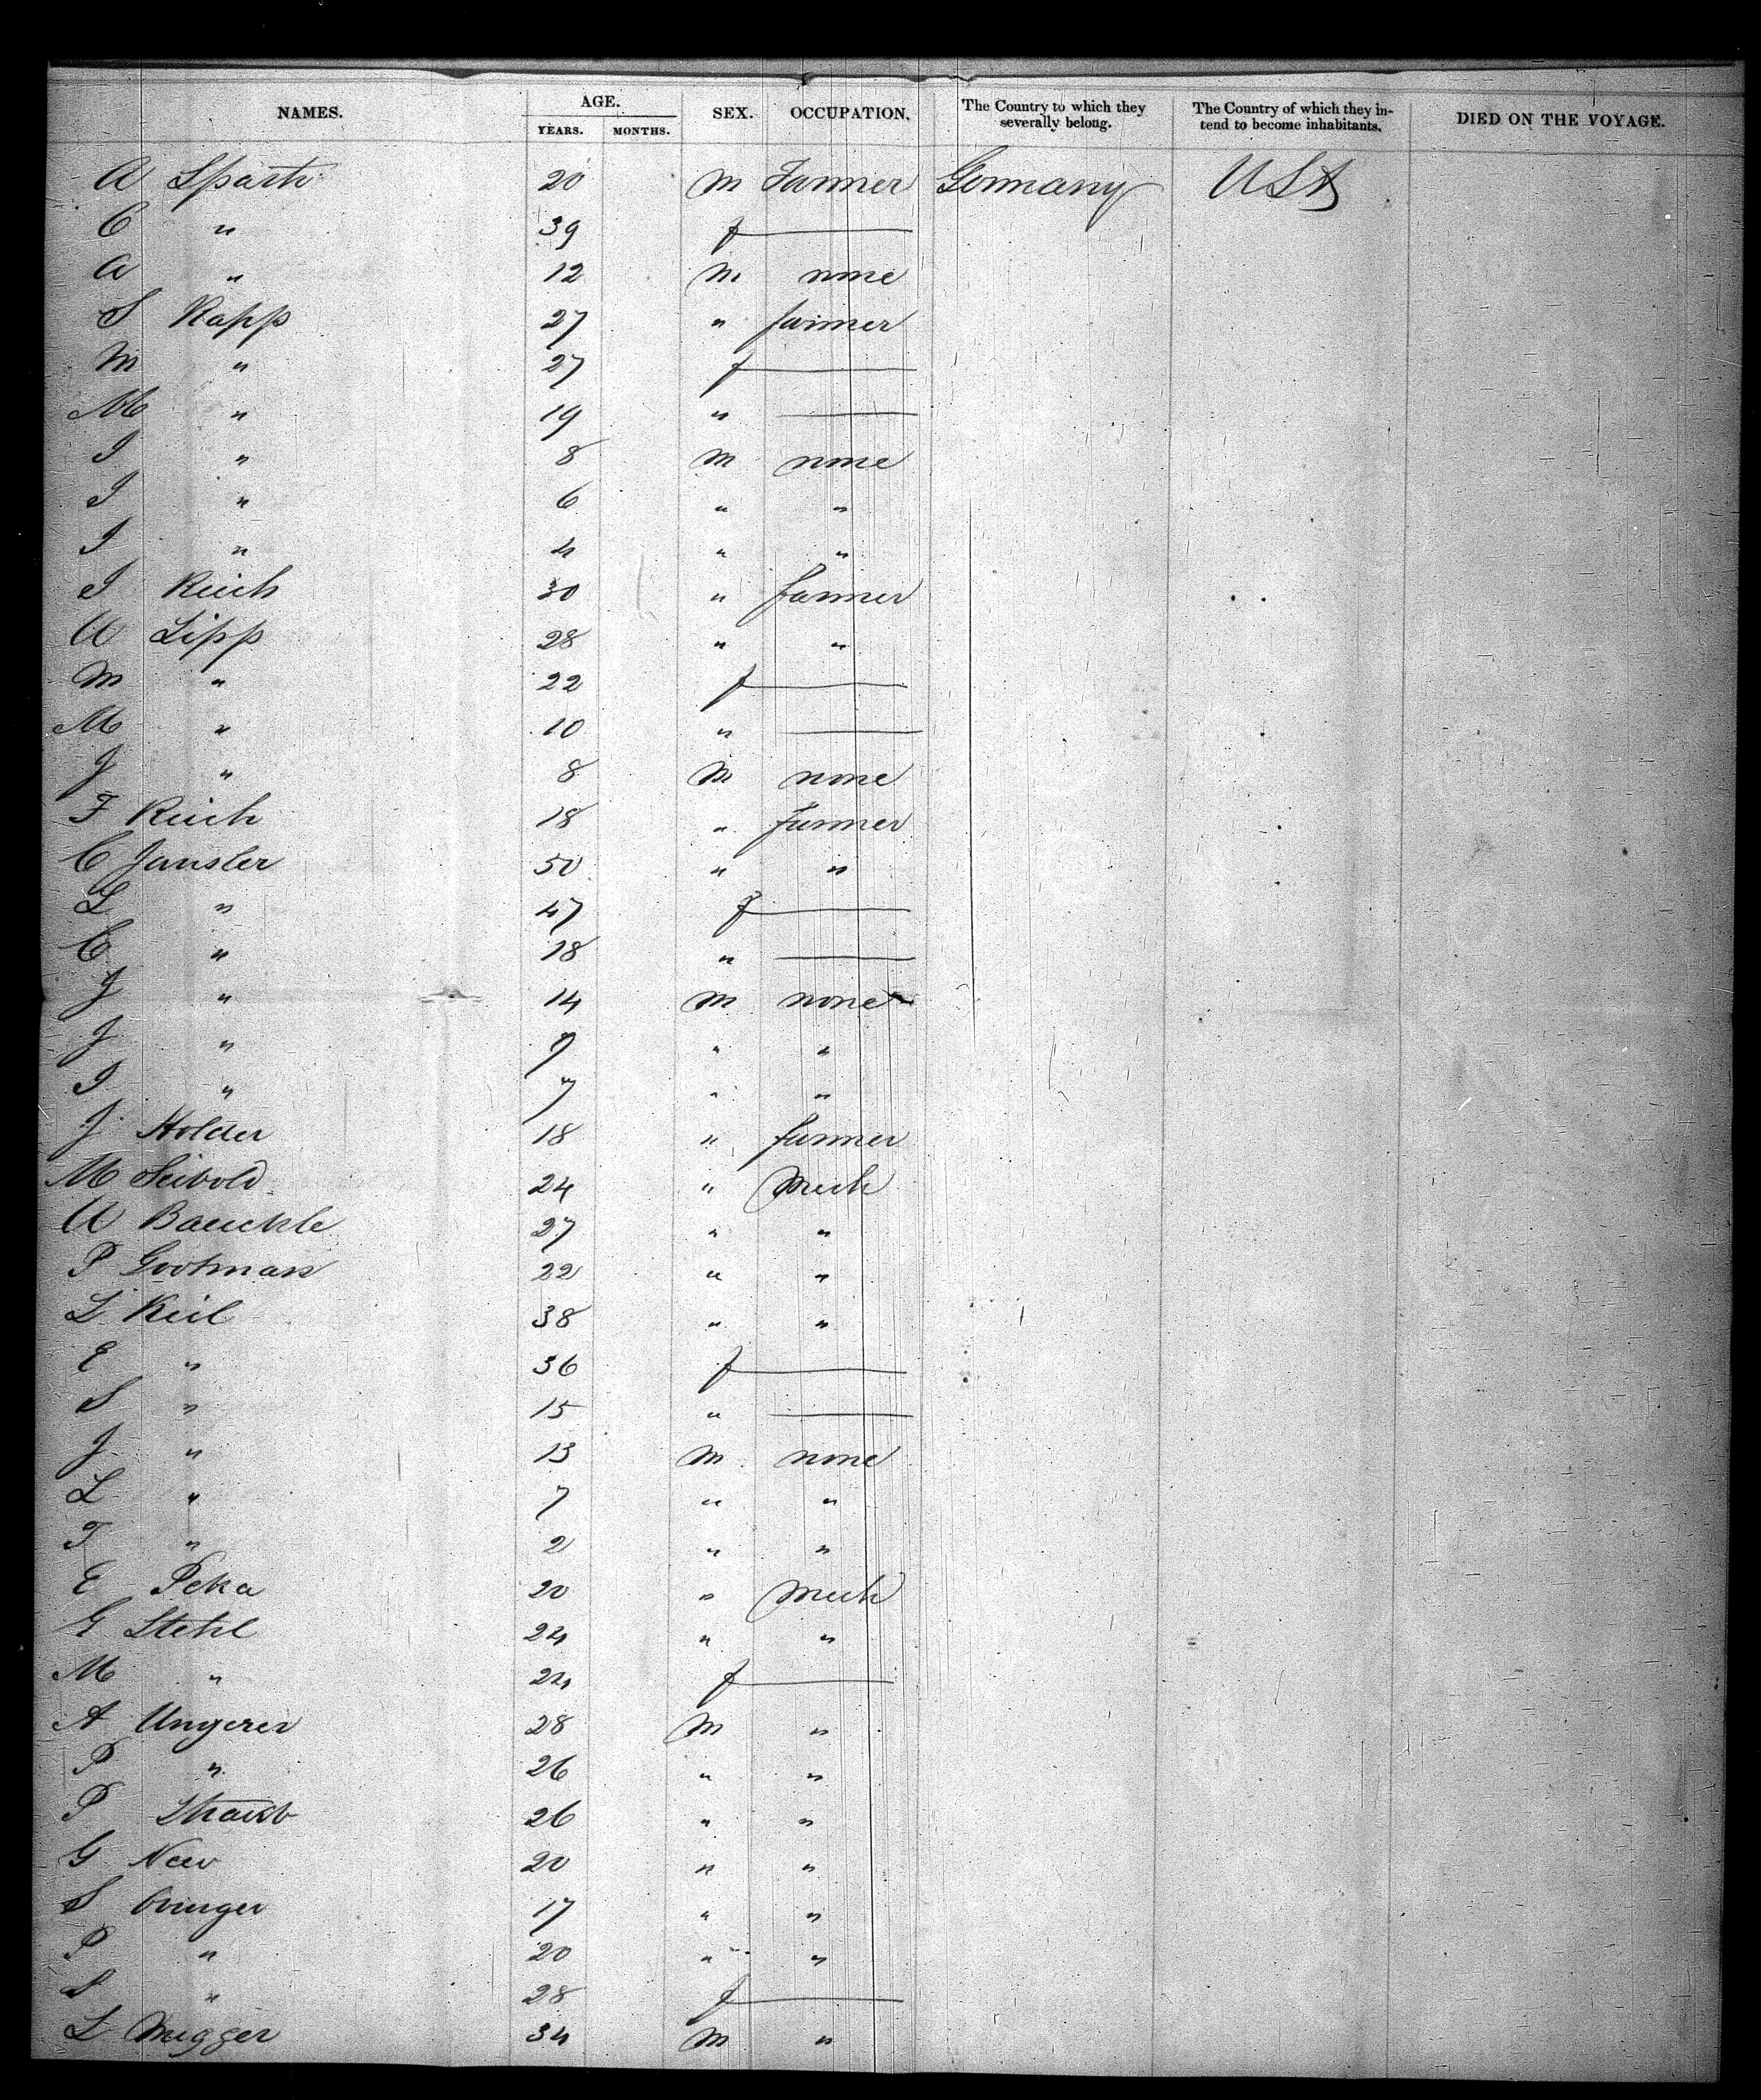 NAMES. AGE. YEARS. MONTHS. SEX. OCCUPATION. The Country to which they severally belong. The Country of which they intend to become inhabitants. DIED ON THE VOYAGE.
A Spath 20 m Farmer Germany USA
C " 39 f
A " 12 m none
S Rapp 27 " farmer
M " 27 f
M " 19 "
I " 8 m none
I " 6 " "
I " 4 " "
I Reich 30 " farmer
A Lipp 28 " "
M " 22 f
M " 10 "
J " 8 m none
F Reich 18 " farmer
C Jansler 50 " "
L " 47 f
C " 18 "
J " 14 m none
J " 9 " "
I " 7 " "
J Holder 18 " farmer
M Seibold 24 " Mech
A Baeuchle 27 " "
P Gootman 22 " "
L Keil 38 " "
E " 36 f
S " 15 "
J " 13 m none
L " 7 " "
T " 2 " "
E Peka 20 " Mech
G Stehl 24 " "
M " 24 f
A Ungerer 28 m "
P " 26 " "
P Straub 26 " "
G New 20 " "
S 17 " "
P " 20 " "
S " 28 f
L Megger 34 m "